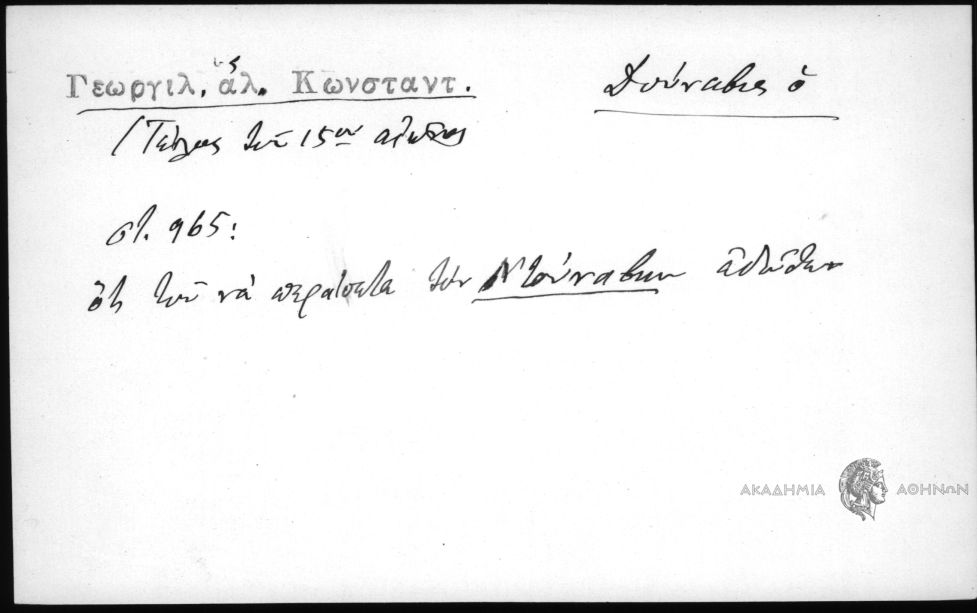 Γεωργιλ. ἅλ. Κωνσταντ.
Δούναβις ὁ
(Τέλος τοῦ 15ου αἰῶνος
στ. 965:
ἕως τοῦ νὰ περάσετε τὸν Ντούναβην
ΑΚΑΔΗΜΙΑ ΑΘΗΝΩΝ